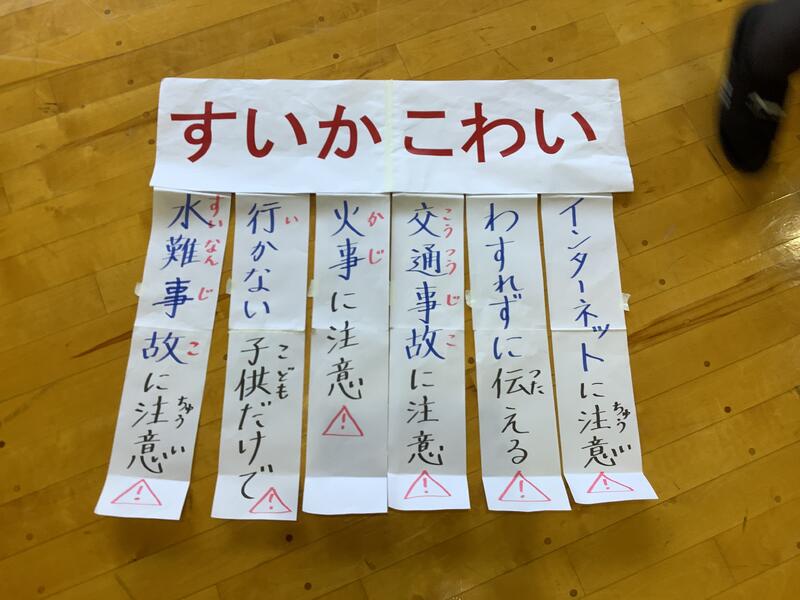 すいかこわい
水難事故に注意
すいなんじこ ちゅうい
行かない子供だけで
い こども
火事に注意
かじ
交通事故に注意
こうつうじこ
わすれずに伝える
つた
インターネットに注意
ちゅうい